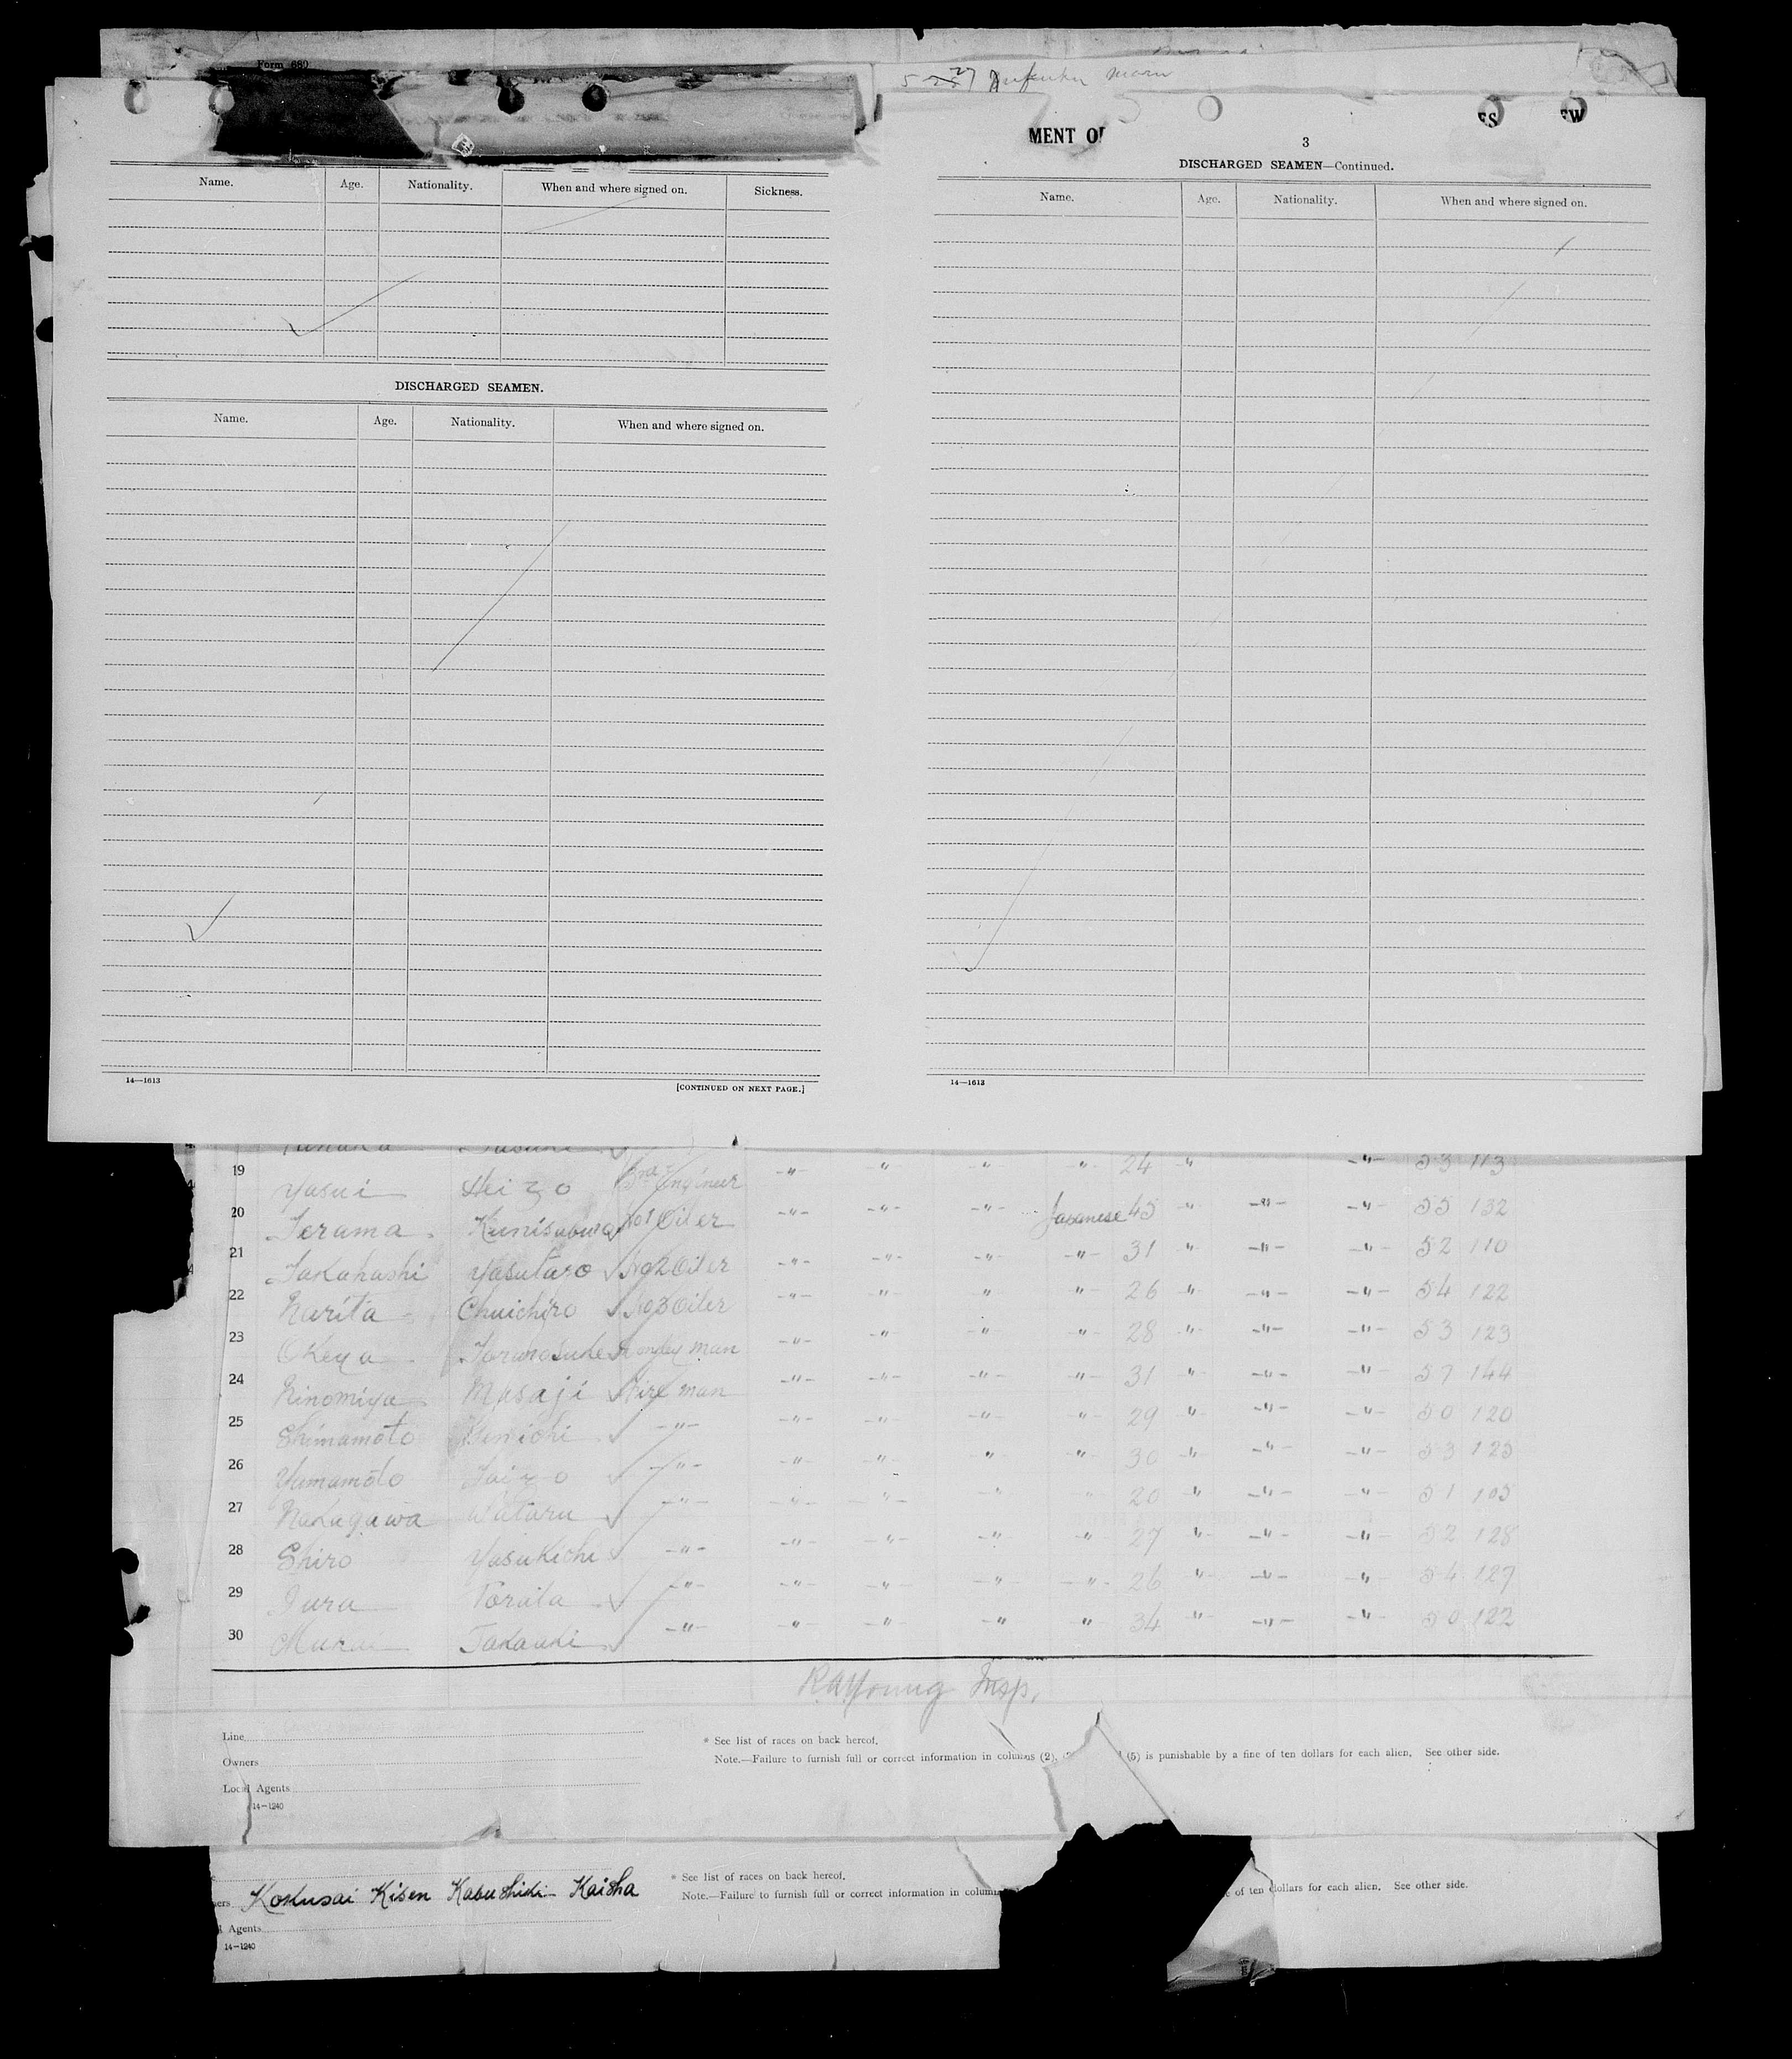 Form 689
maru
MENT OF
ES
EW
Name. Age. Nationality. When and where signed on. Sickness.
DISCHARGED SEAMEN.
Name. Age. Nationality. When and where signed on.
14—1613 [CONTINUED ON NEXT PAGE.]
3
DISCHARGED SEAMEN—Continued.
Name. Age. Nationality. When and where signed on.
14—1613
19 Yasui Heizo 3rd Engineer -"- " " " 24 " -"- 53 113
20 Terama Kunisaburo No1 Oiler -"- -"- -"- Japanese 45 " -"- -"- 55 132
21 Takahashi Yasutaro No2 Oiler -"- -"- -"- -"- 31 " -"- -"- 52 110
22 Narita Chuichiro No3 Oiler -"- " " " 26 " -"- -"- 54 122
23 Okeya Donkey man -"- " -"- " 28 " -"- -"- 53 123
24 Ninomiya Masaji Fire man -"- -"- -"- " 31 " -"- -"- 57 144
25 Shimamoto Kenichi -"- -"- -"- -"- " 29 " -"- -"- 50 120
26 Yamamoto Taizo -"- -"- " " " 30 " -"- -"- 53 125
27 Nakagawa Wataru -"- -"- -"- -"- " 20 " -"- -"- 51 105
28 Shiro Yasukichi -"- -"- -"- " " 27 " -"- -"- 52 128
29 Torata -"- -"- -"- -"- -"- 26 " -"- -"- 54 127
30 Takauki -"- " -"- -"- " 34 " -"- -"- 50 122
RAYoung Insp.
Line
Owners
Local Agents
14—1240
* See list of races on back hereof.
Note.—Failure to furnish full or correct information in columns (2), (5) is punishable by a fine of ten dollars for each alien. See other side.
ers Kokusai Kisen Kabushiki Kaisha
l Agents
14—1240
* See list of races on back hereof.
Note.—Failure to furnish full or correct information in columns
e of ten dollars for each alien. See other side.